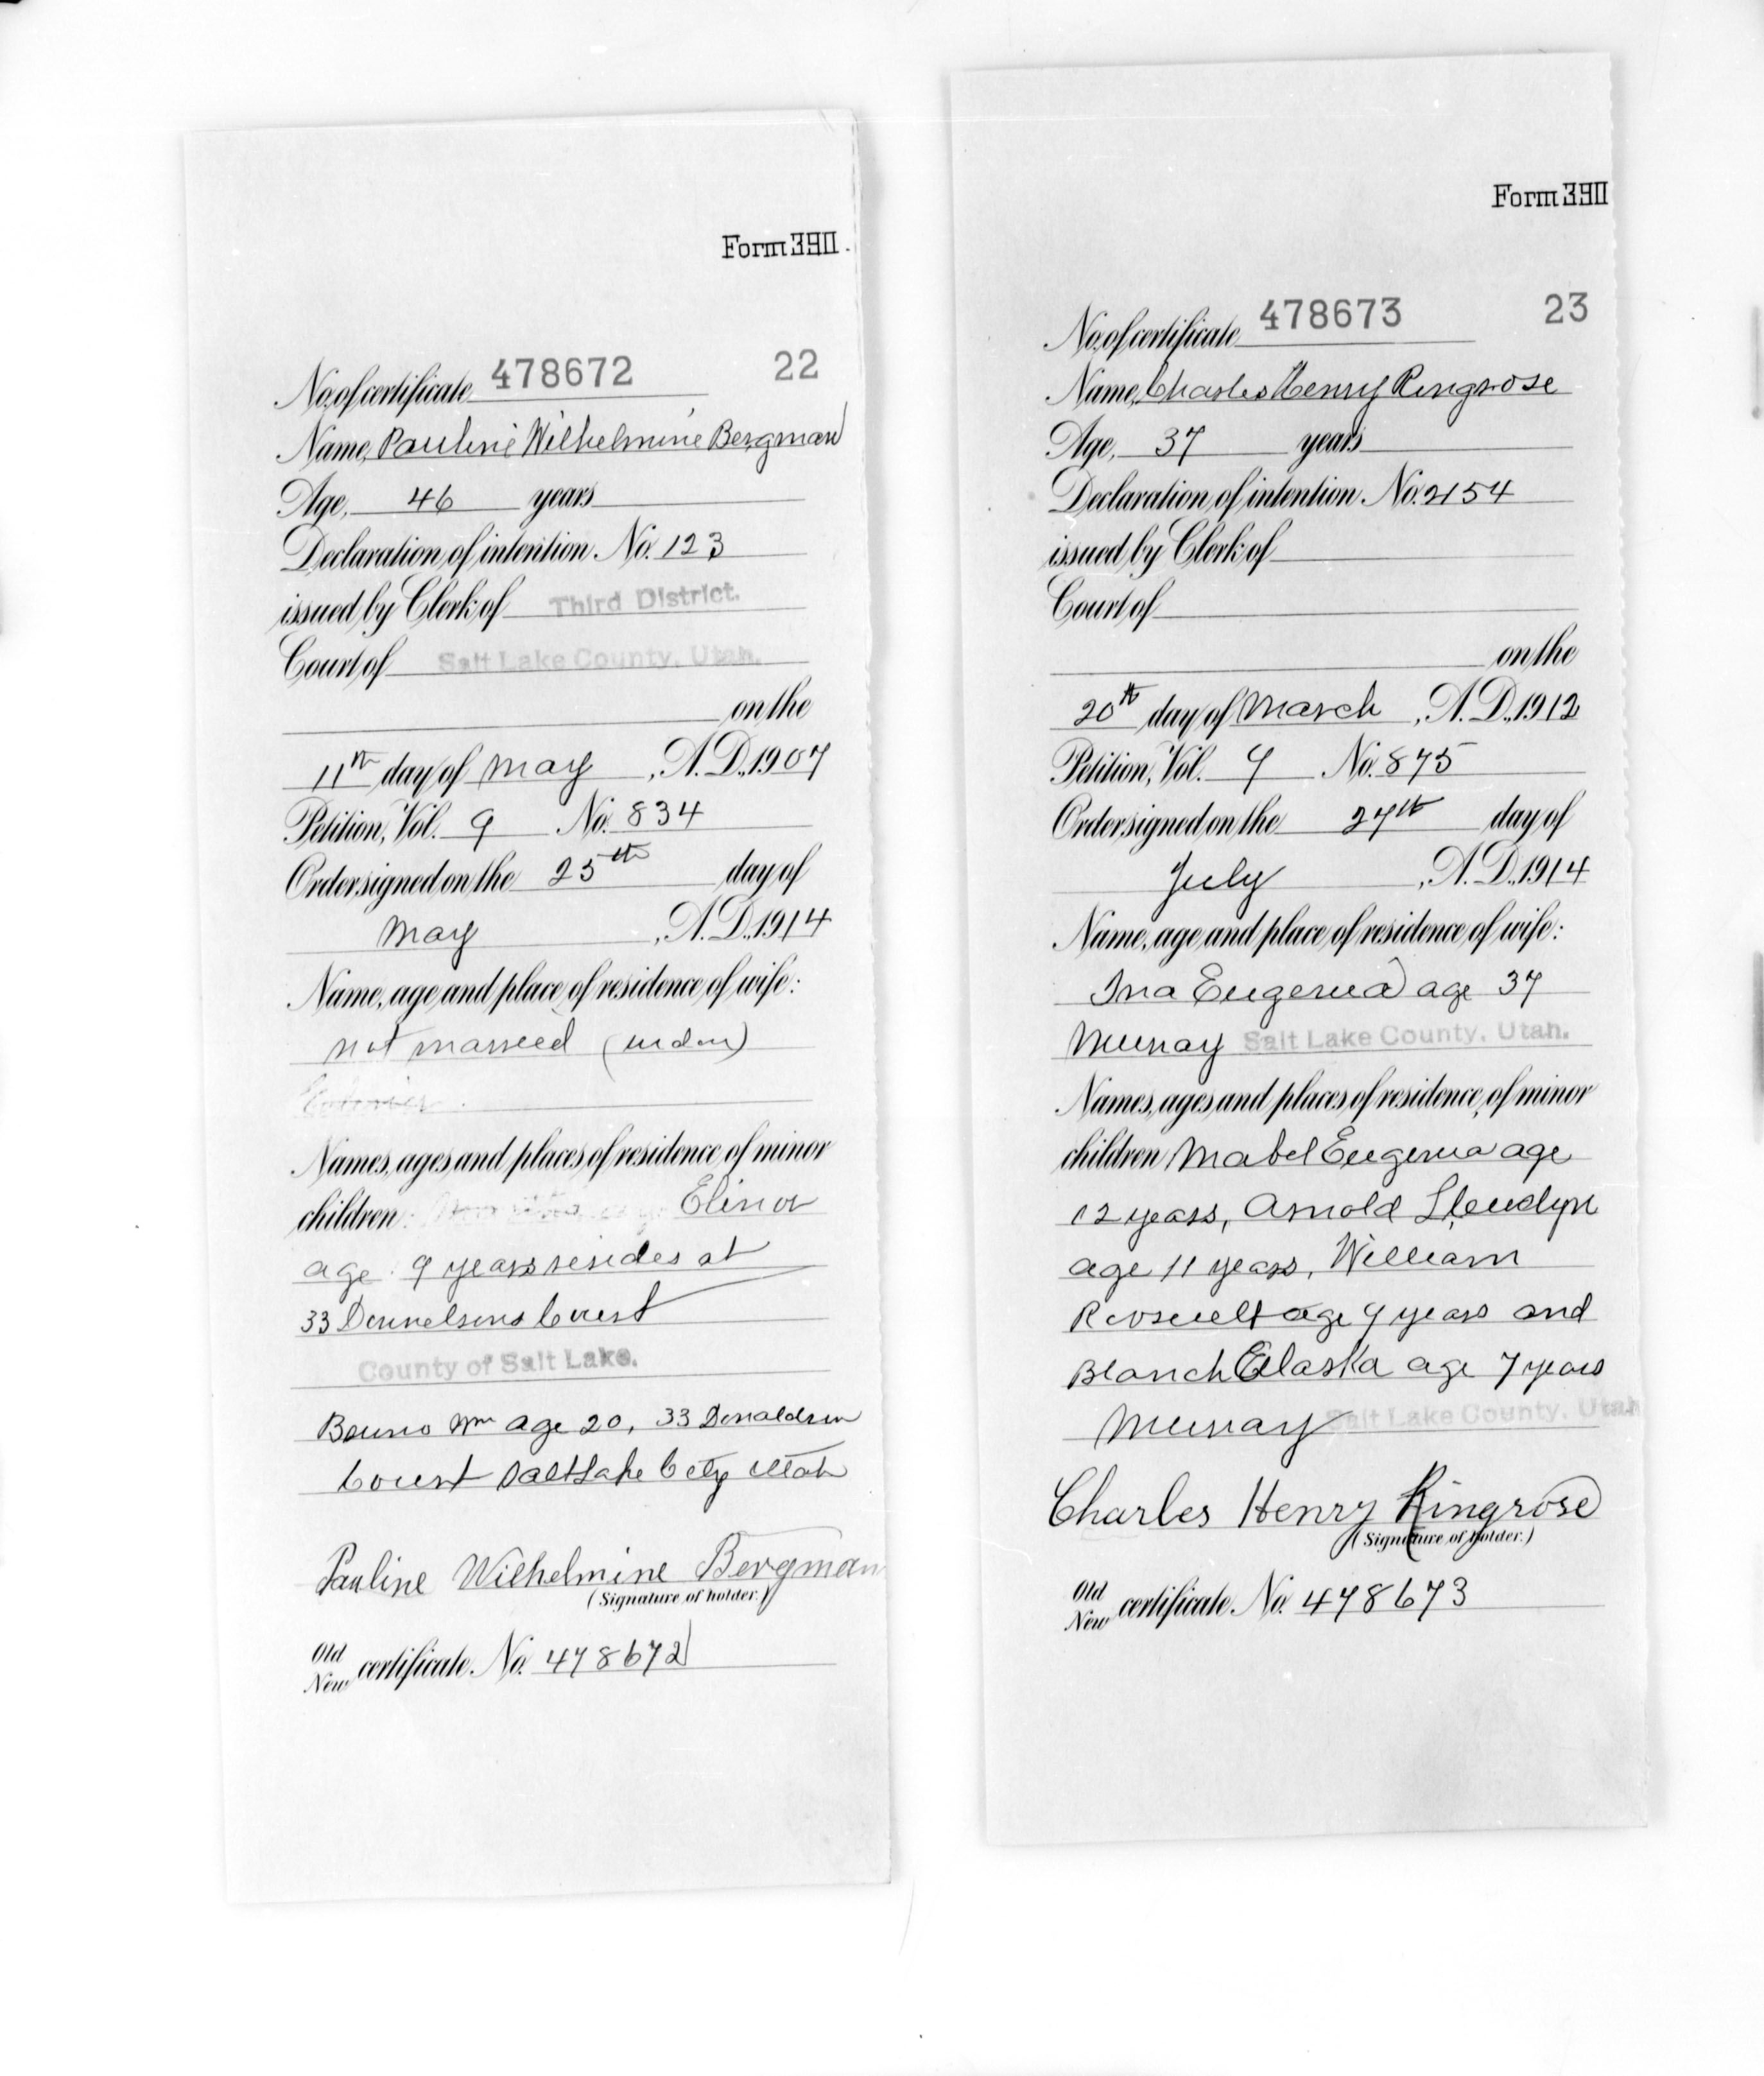 Form 390.
No. of certificate 478672 22
Name, Pauline Wilhelmine Bergman
Age, 46 years
Declaration of intention No. 123
issued by Clerk of Third District.
Court of Salt Lake County, Utah.
on the
11th day of May, A. D., 1907
Petition, Vol. 9 No. 834
Order signed on the 25th day of
May, A. D., 1914
Name, age and place of residence of wife:
not married
Names, ages and places of residence of minor
children: Elinor
age 9 years resides at
33 Court
County of Salt Lake.
Bruno Wm age 20, 33 Donaldson
Court Salt Lake City Utah
Pauline Wilhelmine Bergman
(Signature of holder.)
Old
New certificate No. 478672
Form 390
No. of certificate 478673 23
Name, Charles Henry Ringrose
Age, 37 years
Declaration of intention No. 2154
issued by Clerk of
Court of
on the
20th day of March, A. D., 1912
Petition, Vol. 9 No. 875
Order signed on the 27th day of
July, A. D., 1914
Name, age and place of residence of wife:
Ina Eugenia age 37
Murray Salt Lake County, Utah.
Names, ages and places of residence of minor
children Mabel Eugenia age
12 years, Arnold Llewelyn
age 11 years, William
Roosevelt age 9 years and
Blanch Alaska age 7 years
Murray Salt Lake County, Utah
Charles Henry Ringrose
(Signature of holder.)
Old
New certificate No. 478673